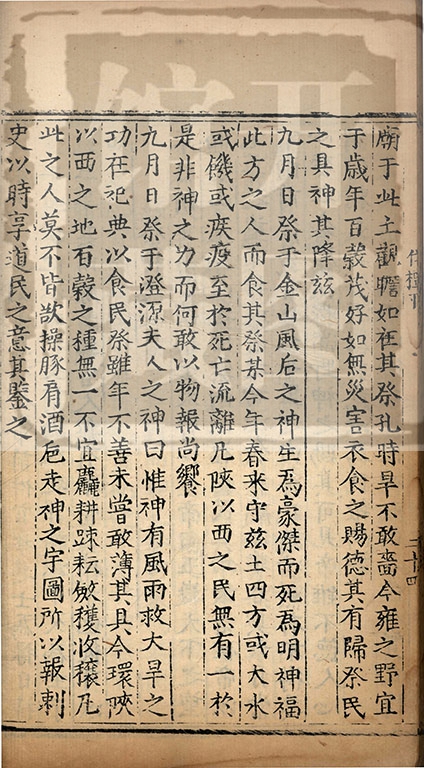 廟于此土觀瞻如在其祭孔時旱不敢嗇今雍之野宜
于歲年百穀茂好如無災害衣食之賜德其有歸祭民
之具神其降茲
九月日祭于金山風后之神生為豪傑而死為明神福
此方之人而食其祭某今年春來守茲土四方或大水
或饑或疾疫至於死亡流離凡陝以西之民無有一於
是非神之力而何敢以物報尚饗
九月日祭于澄源夫人之神曰惟神有風雨救大旱之
功在祀典以食民祭雖年不善未嘗敢薄其具今環陝
以西之地百穀之種無一不宜麤耕踈耘斂穫收穰凡
此之人莫不皆歡操豚肩酒卮走神之宇圖所以報刺
史以時享道民之意其鑒之
二十四